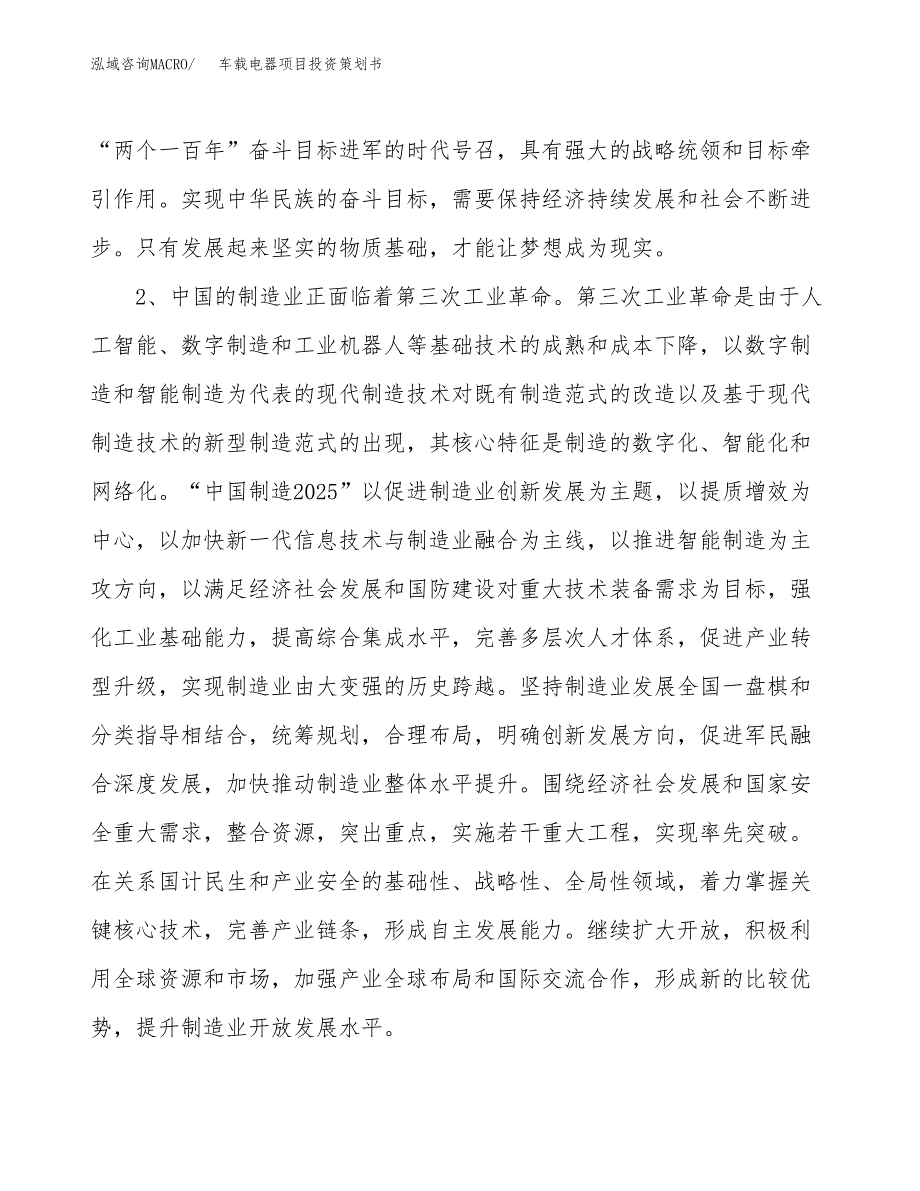 泓域咨询MACRO/ 车载电器项目投资策划书
“两个一百年”奋斗目标进军的时代号召，具有强大的战略统领和目标牵
引作用。实现中华民族的奋斗目标，需要保持经济持续发展和社会不断进
步。只有发展起来坚实的物质基础，才能让梦想成为现实。
2、中国的制造业正面临着第三次工业革命。第三次工业革命是由于人
工智能、数字制造和工业机器人等基础技术的成熟和成本下降，以数字制
造和智能制造为代表的现代制造技术对既有制造范式的改造以及基于现代
制造技术的新型制造范式的出现，其核心特征是制造的数字化、智能化和
网络化。“中国制造2025”以促进制造业创新发展为主题，以提质增效为
中心，以加快新一代信息技术与制造业融合为主线，以推进智能制造为主
攻方向，以满足经济社会发展和国防建设对重大技术装备需求为目标，强
化工业基础能力，提高综合集成水平，完善多层次人才体系，促进产业转
型升级，实现制造业由大变强的历史跨越。坚持制造业发展全国一盘棋和
分类指导相结合，统筹规划，合理布局，明确创新发展方向，促进军民融
合深度发展，加快推动制造业整体水平提升。围绕经济社会发展和国家安
全重大需求，整合资源，突出重点，实施若干重大工程，实现率先突破。
在关系国计民生和产业安全的基础性、战略性、全局性领域，着力掌握关
键核心技术，完善产业链条，形成自主发展能力。继续扩大开放，积极利
用全球资源和市场，加强产业全球布局和国际交流合作，形成新的比较优
势，提升制造业开放发展水平。